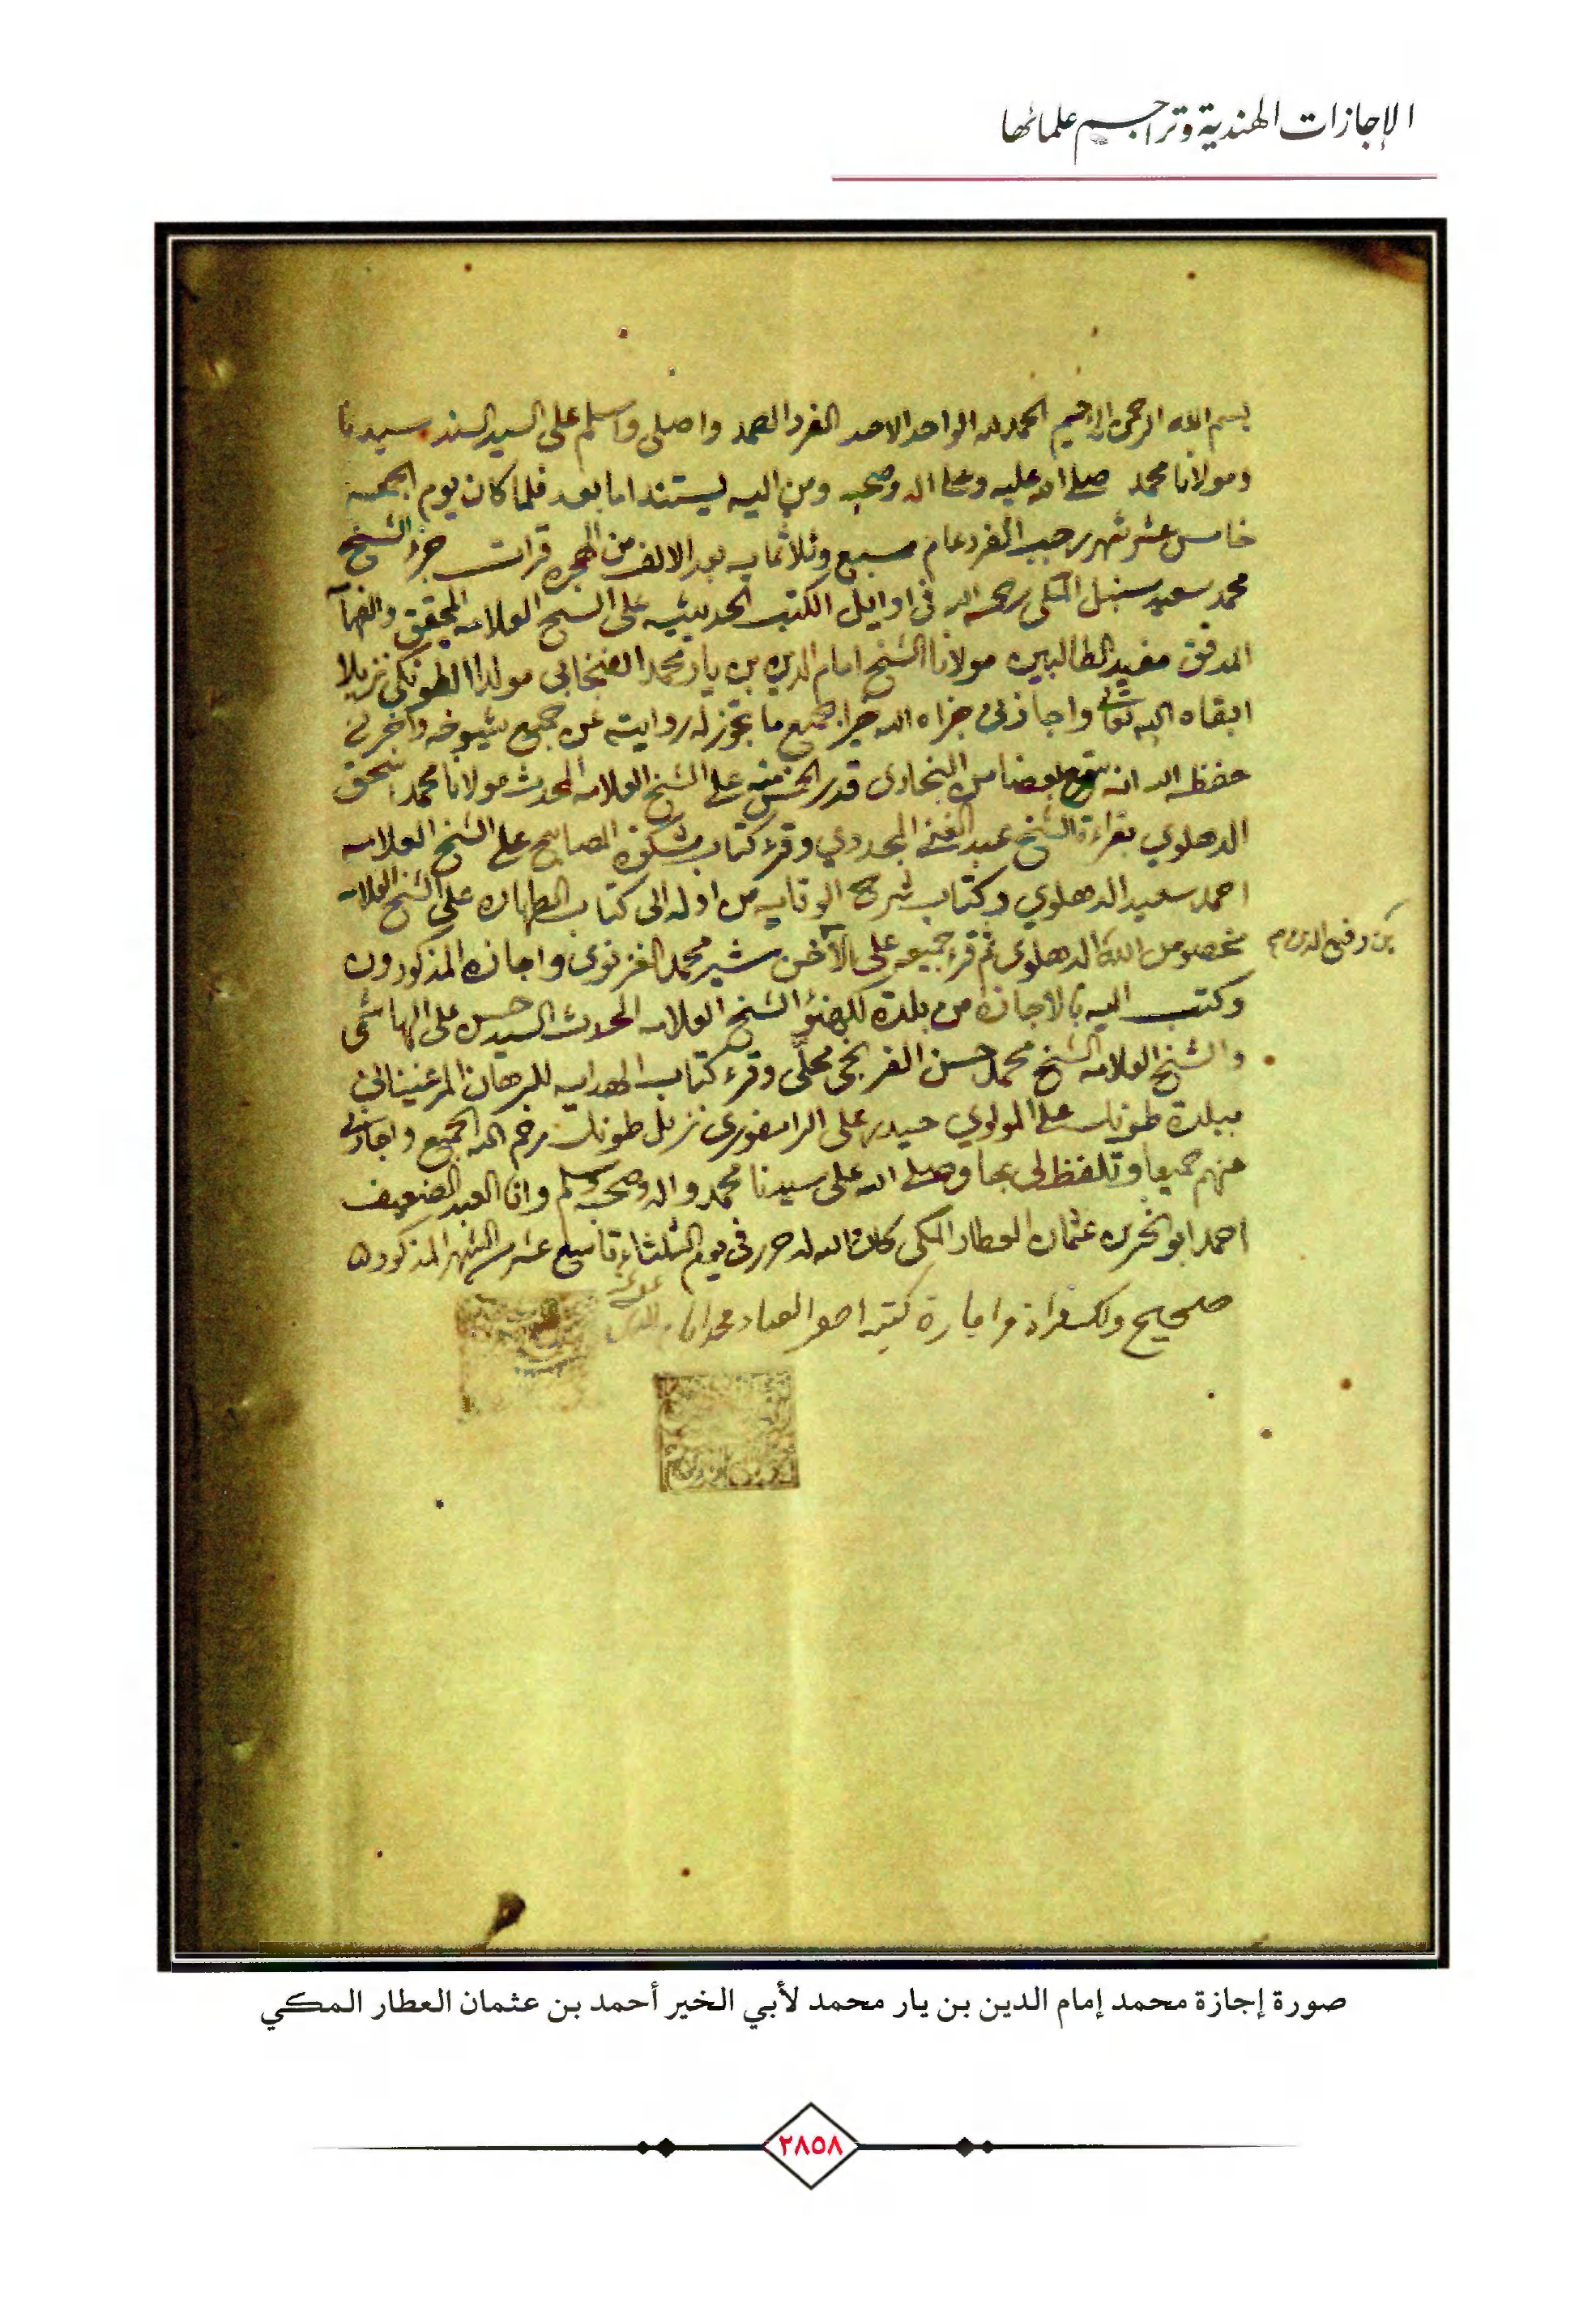 الإجازات الهندية وتراجم علمائها
بسم الله الرحمن الرحيم الحمد لله الواحد الاحد الفرد الصمد واصلي واسلم على السيد السند سيدنا
ومولانا محمد صلى الله عليه وعلى اله وصحبه ومن اليه يستند اما بعد فلما كان يوم الجمعه
خامس عشر شهر رجب الفرد عام سبع وثلاثمايه بعد الالف من الهجره قرات جزء الشيخ
محمد سعيد سنبل المكي رحمه الله في اوايل الكتب الحديثيه على الشيخ العلامه المحقق والفهامة
المدقق مفيد الطالبين مولانا الشيخ امام الدين بن يار محمد الفنجابي مولدا الطونكي نزيلا
ابقاه الله تعالى واجازني جزاه الله خيرا بجميع ما تجوز له روايته عن جميع شيوخه واخبرني
حفظه الله انه سمع بعضا من البخاري قدر الخمس منه على الشيخ العلامه المحدث مولانا محمد اسحق
الدهلوي بقراءة الشيخ عبد الغني المجددي وقرء كتاب مشكوة المصابيح على الشيخ العلامه
احمد سعيد الدهلوي وكتاب شرح الوقايه من اوله الى كتاب الطهاره على الشيخ العلامه
مخصوص الله الدهلوي ثم قرء جميعه على الآخن شير محمد الغزنوي واجازه المذكورون
بن رفيع الدين
وكتب اليه بالاجازه من بلدة لكهنؤ الشيخ العلامه المحدث السيد حسن علي الهاشمي
والشيخ العلامه الشيخ محمد حسن الفرنجي محلي وقرء كتاب الهدايه للبرهان المرغيناني
ببلدة طونك على المولوي حيدر علي الرامفوري نزيل طونك رحم الله الجميع واجازني
عنهم جميعا وتلفظ لي بها وصلى الله على سيدنا محمد واله وصحبه وسلم وانا العبد الضعيف
احمد ابو الخير بن عثمان العطار المكي كان الله له حرر في يوم الثلثاء تاسع عشر من الشهر المذكور
صحيح ذلك قراة واجازة كتبه اصغر العباد محمد امام الدين
صورة إجازة محمد إمام الدين بن يار محمد لأبي الخير أحمد بن عثمان العطار المكي
٢٨٥٨